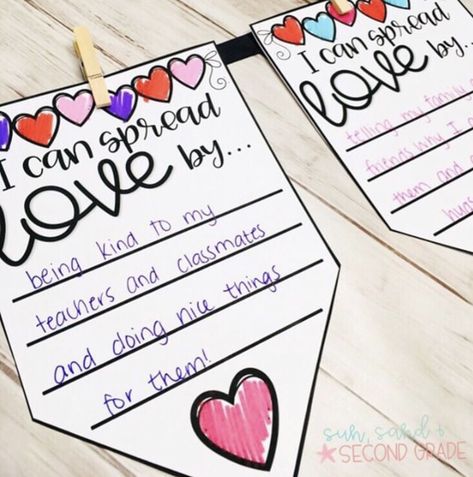 I can spread
love by...
being kind to my
teachers and classmates
and doing nice things
for them!
I can spread
love by...
telling my family
friends why I
them and
hugs
sun, sand &
SECOND GRADE